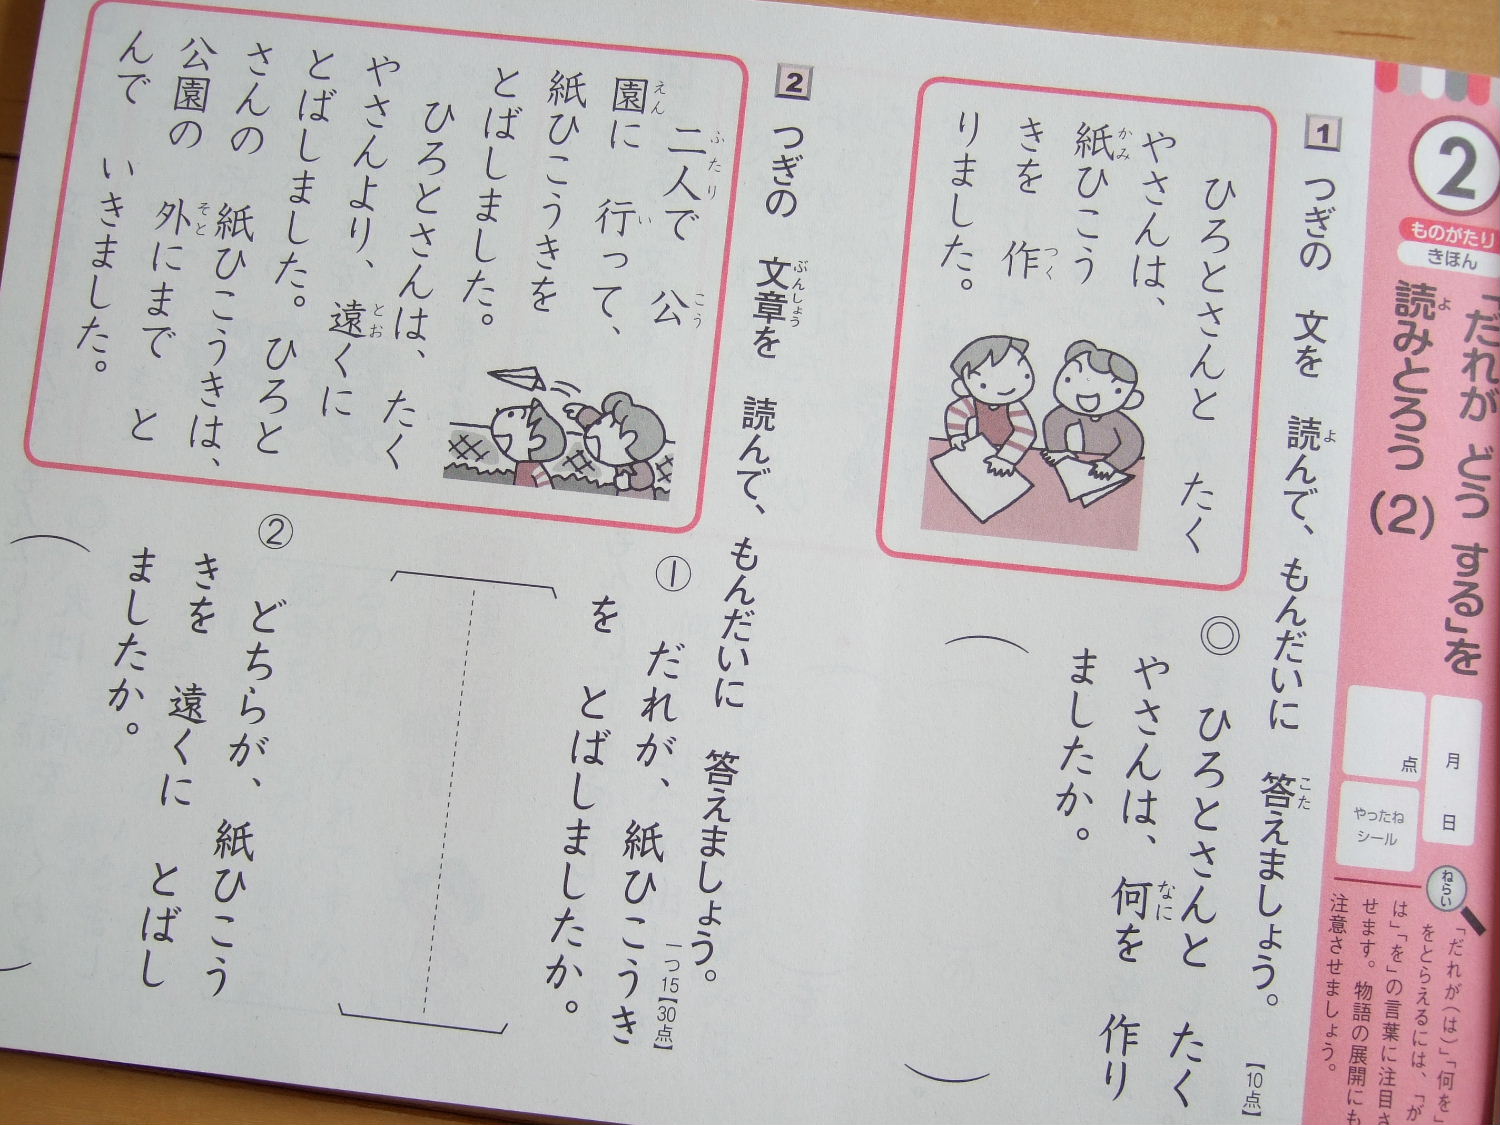 2
ものがたり
きほん
「だれが どう する」を
読みとろう (2)
よ
月
日
点
やったね
シール
ねらい
「だれが(は)」「何を」
をとらえるには、「が
は」「を」の言葉に注目さ
せます。物語の展開にも
注意させましょう。
1 つぎの 文を 読んで、もんだいに 答えましょう。
よ
こた
【10点】
ひろとさんと たく
やさんは、
紙ひこう
かみ
きを 作
つく
りました。
◎ ひろとさんと たく
やさんは、何を 作り
なに
ましたか。
2 つぎの 文章を 読んで、もんだいに 答えましょう。
ぶんしょう
一つ15【30点】
二人で 公
ふたり
こう
園に 行って、
えん
い
紙ひこうきを
とばしました。
ひろとさんは、たく
やさんより、遠くに
とお
とばしました。ひろと
さんの 紙ひこうきは、
公園の 外にまで と
そと
んで いきました。
① だれが、紙ひこうき
を とばしましたか。
② どちらが、紙ひこう
きを 遠くに とばし
ましたか。